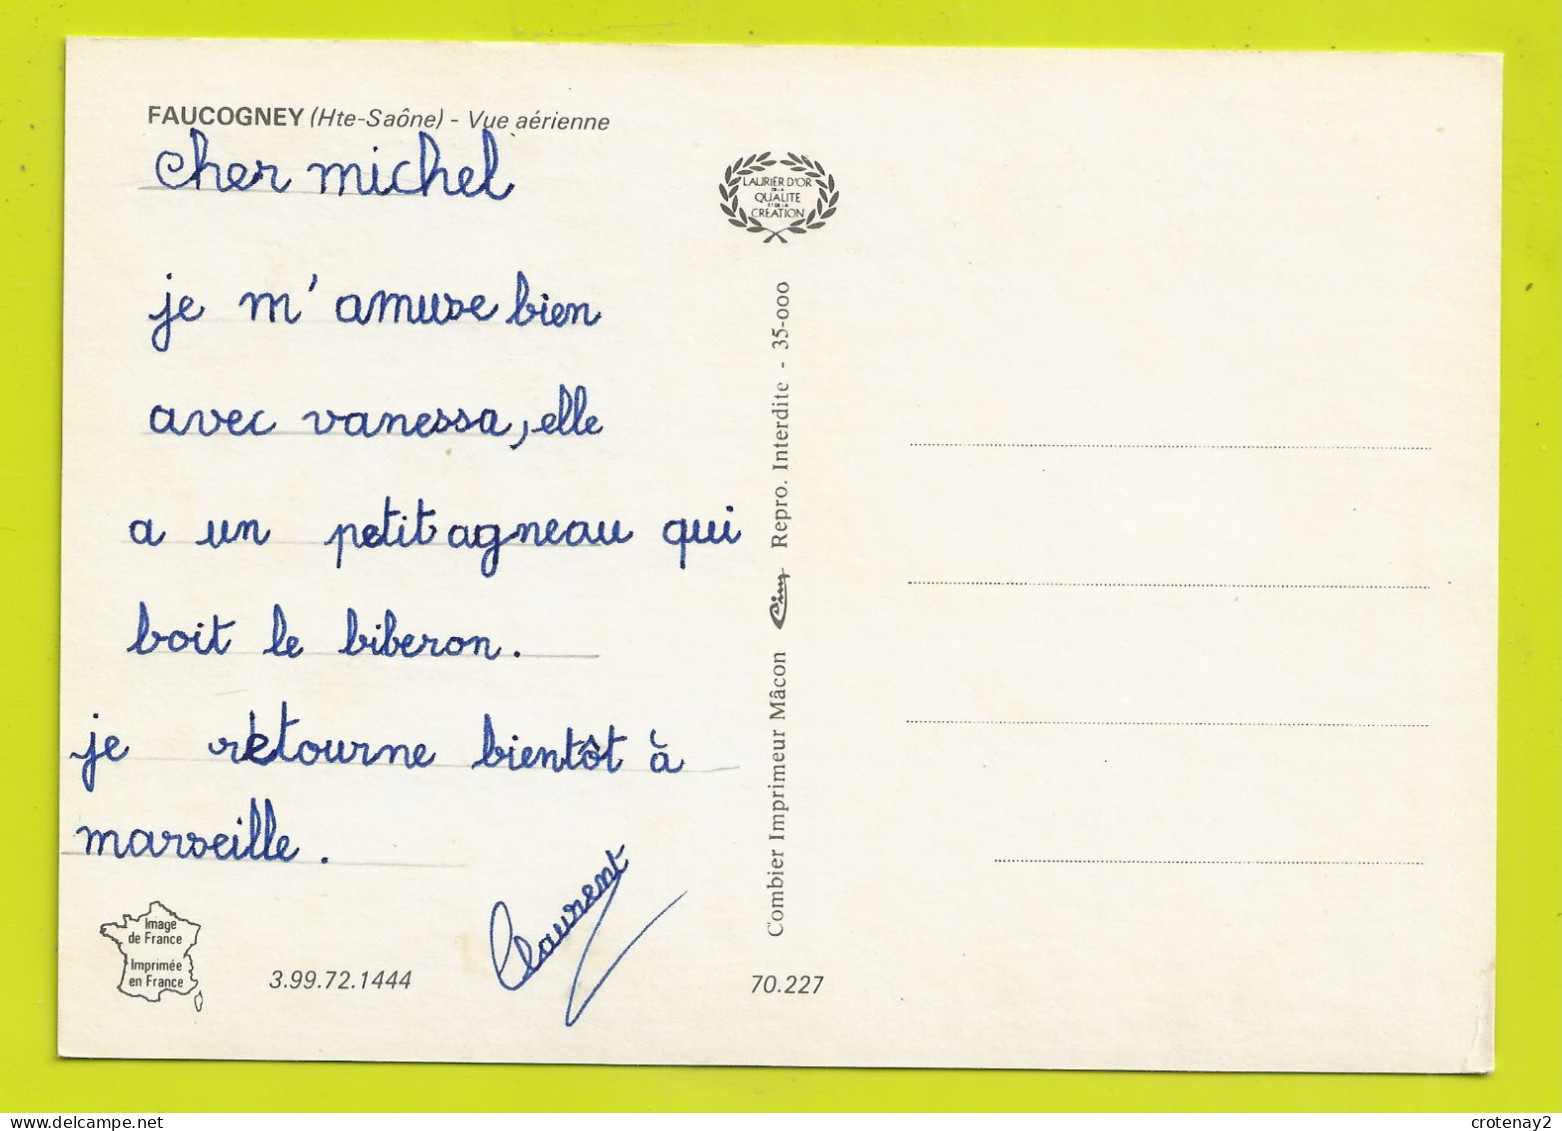 FAUCOGNEY (Hte-Saône) - Vue aérienne
cher michel
je m'amuse bien
avec vanessa, elle
a un petit agneau qui
boit le biberon.
je retourne bientôt à
marseille.
Laurent
Image
de France
Imprimée
en France
3.99.72.1444
LAURIER D'OR
DE LA
QUALITE
ET DE LA
CREATION
Combier Imprimeur Mâcon Cim Repro. Interdite - 35-000
70.227
crotenay2